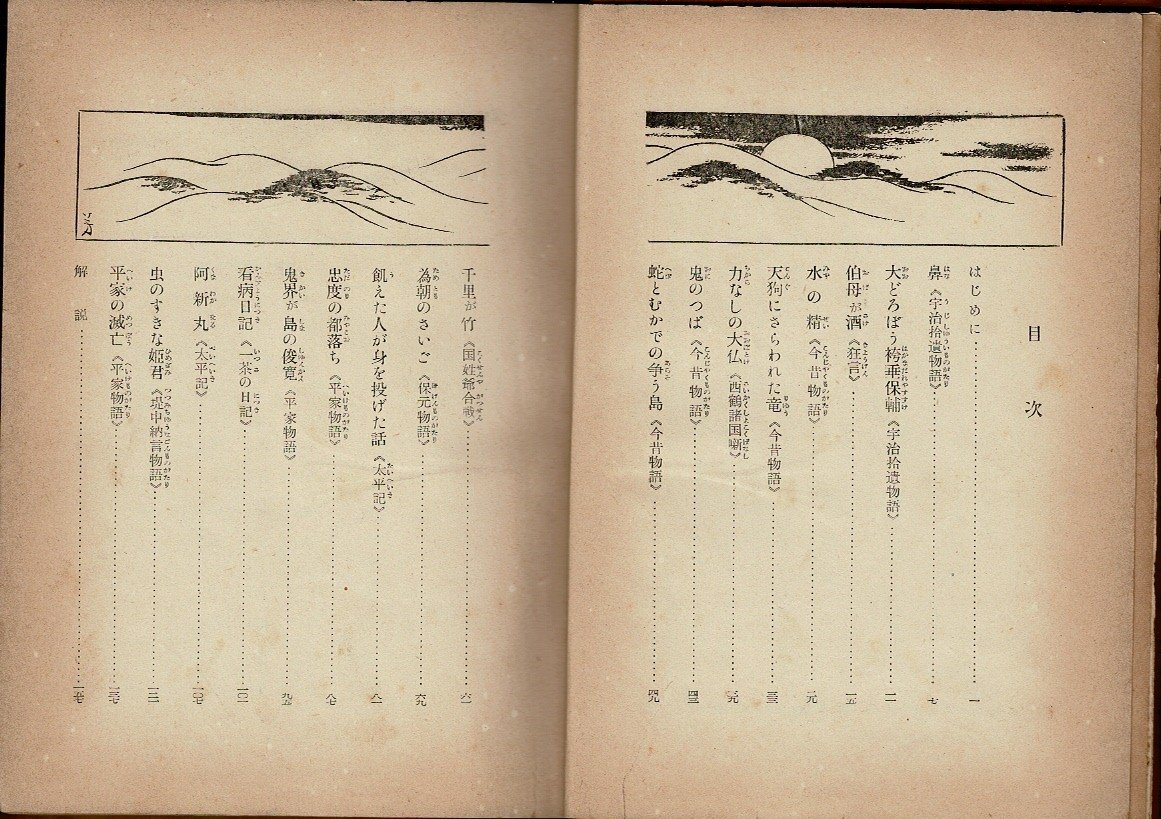 目次
はじめに……一
鼻《宇治拾遺物語》……七
大どろぼう袴垂保輔《宇治拾遺物語》……一一
伯母が酒《狂言》……一五
水の精《今昔物語》……二九
天狗にさらわれた竜《今昔物語》……三三
力なしの大仏《西鶴諸国噺》……三九
鬼のつば《今昔物語》……四三
蛇とむかでの争う島《今昔物語》……四九
千里が竹《国姓爺合戦》……六一
為朝のさいご《保元物語》……六九
飢えた人が身を投げた話《太平記》……八一
忠度の都落ち《平家物語》……八七
鬼界が島の俊寛《平家物語》……九五
看病日記《一茶の日記》……一〇一
阿新丸《太平記》……一〇七
虫のすきな姫君《堤中納言物語》
平家の滅亡《平家物語》
解説